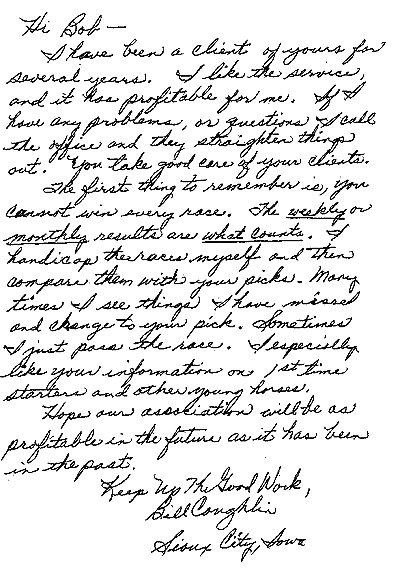 Hi Bob —
I have been a client of yours for
several years. I like the service,
and it has profitable for me. If I
have any problems, or questions I call
the office and they straighten things
out. You take good care of your clients.
The first thing to remember is, you
cannot win every race. The weekly or
monthly results are what counts. I
handicap the races myself and then
compare them with your picks. Many
times I see things I have missed
and change to your pick. Sometimes
I just pass the race. I especially
like your information on 1st time
starters and other young horses.
Hope our association will be as
profitable in the future as it has been
in the past.
Keep Up The Good Work,
Bill Coughlin
Sioux City, Iowa